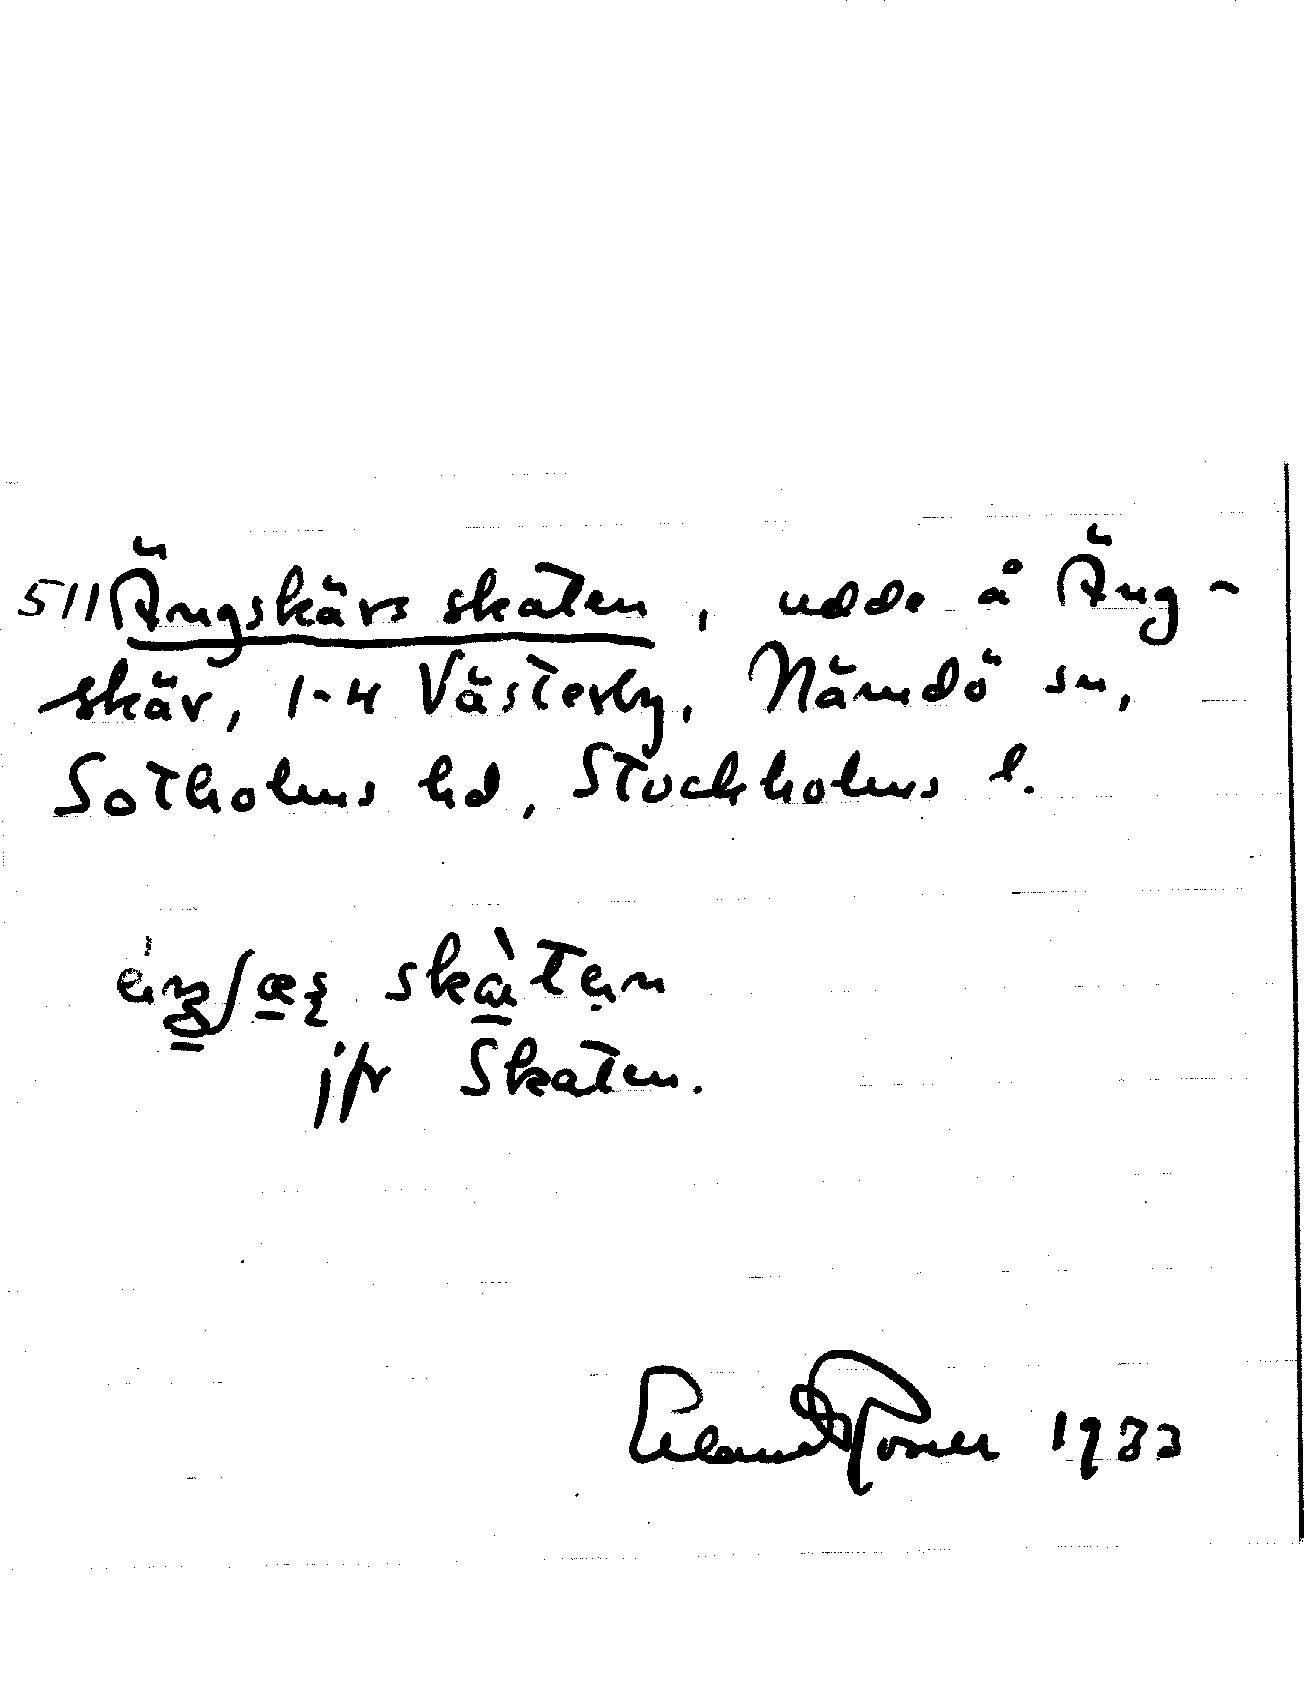 511 Ängskärs skaten, udde å Äng-
skär, 1-4 Västerby, Nämdö sn,
Sotholms hd, Stockholms l.
skàten
jfr Skaten.
Erland Rosell 1933